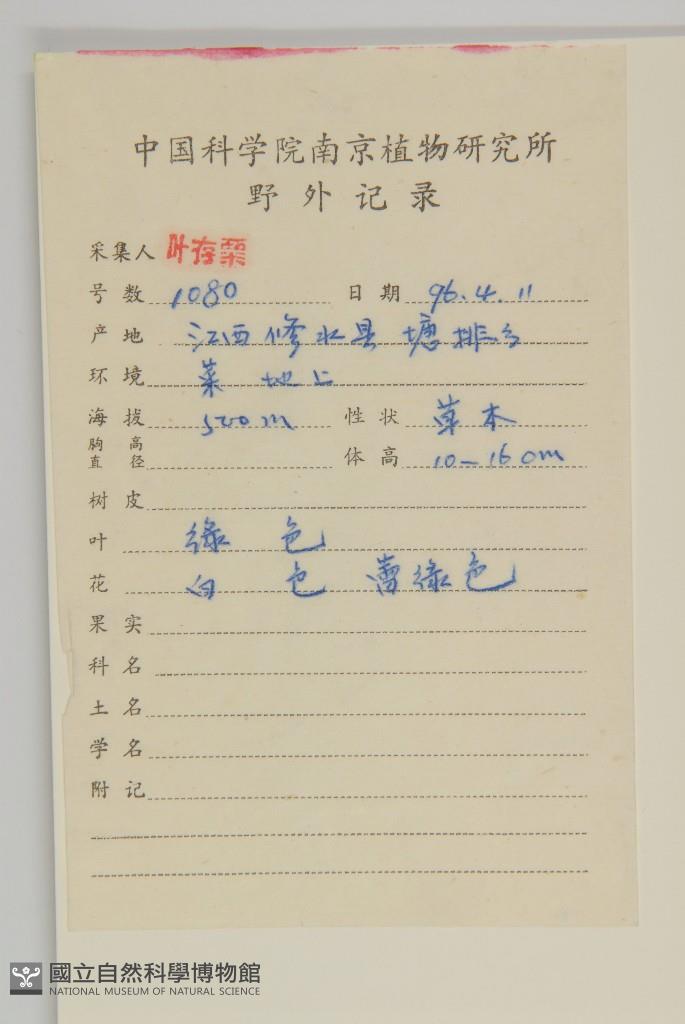 中国科学院南京植物研究所
野外记录
采集人 叶存粟
号数 1080 日期 96.4.11
产地 江西修水县塘排乡
环境 菜地上
海拔 500m 性状 草本
胸高直径 体高 10-16cm
树皮
叶 绿色
花 白色 蕾绿色
果实
科名
土名
学名
附记
國立自然科學博物館
NATIONAL MUSEUM OF NATURAL SCIENCE